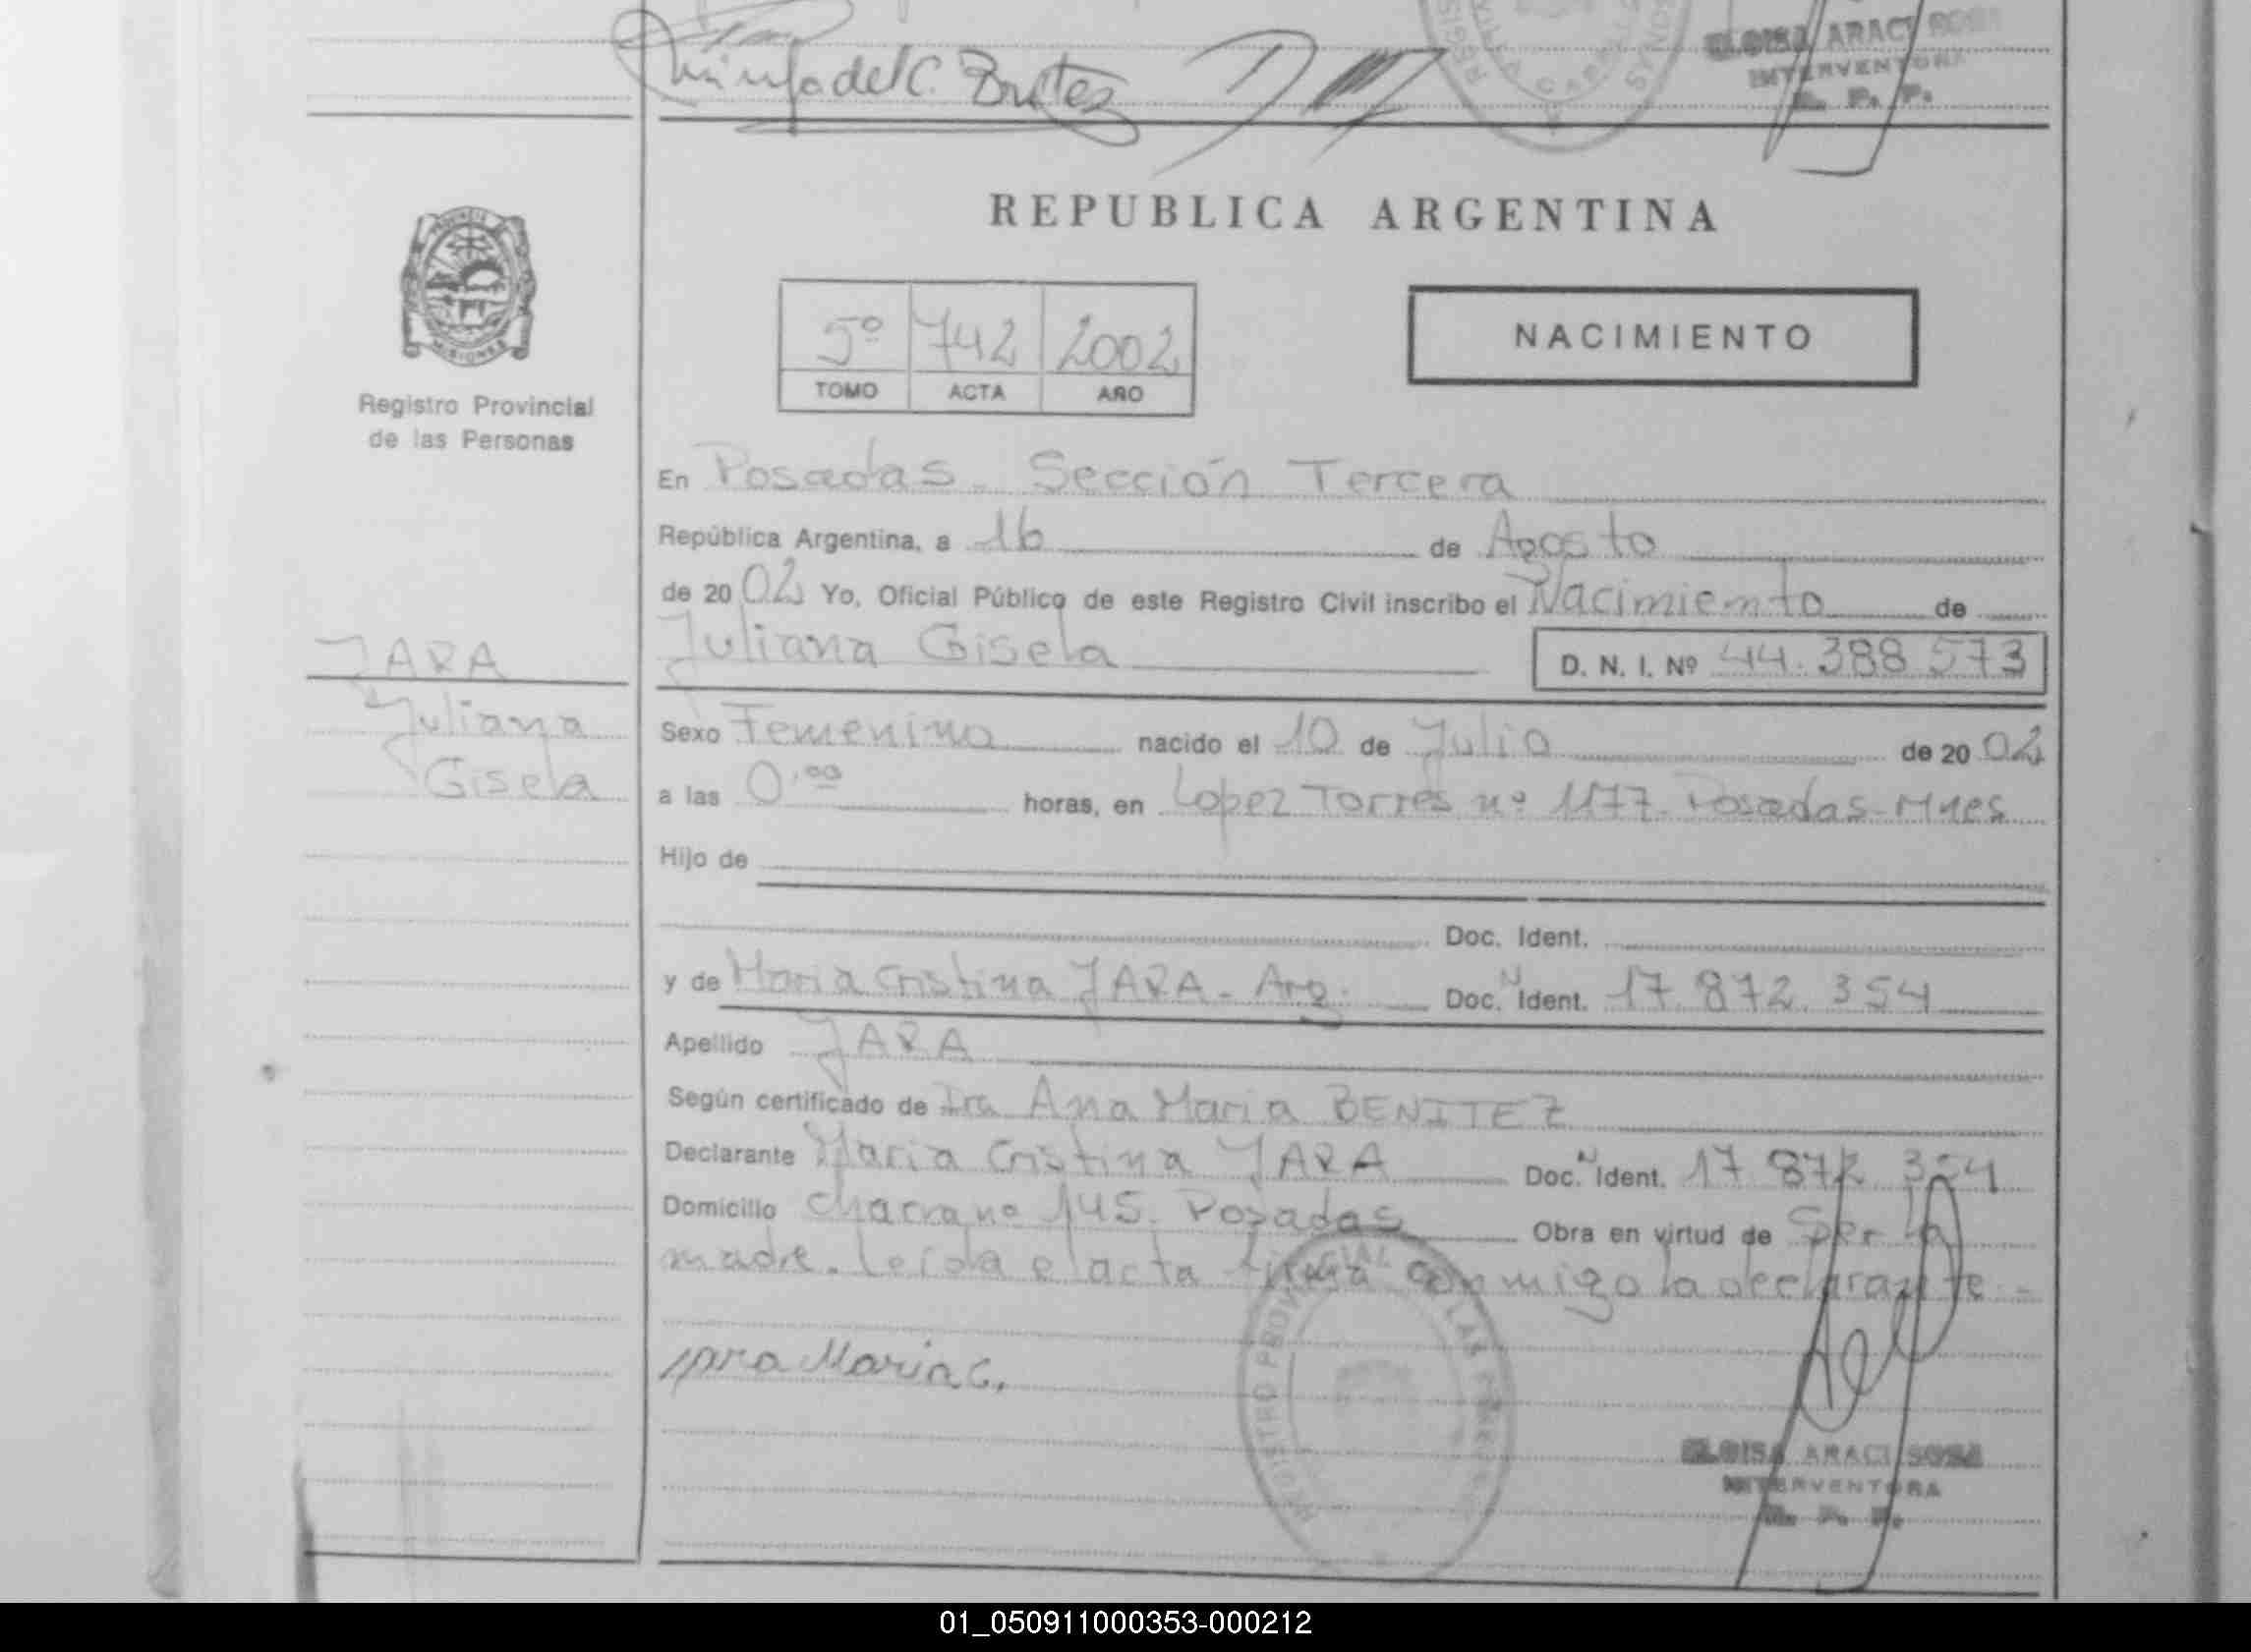 del C. Britez
REGIS
ELOISA ARACI SOSA
INTERVENTORA
R. P. P.
REPUBLICA ARGENTINA
PROVINCIA
MISIONES
5º 742 2002
TOMO ACTA AÑO
NACIMIENTO
Registro Provincial
de las Personas
En Posadas - Sección Tercera
República Argentina, a 16 de Agosto
de 2002 Yo, Oficial Público de este Registro Civil inscribo el Nacimiento de
Juliana Gisela D. N. I. Nº 44.388.573
JARA
Juliana
Gisela
Sexo Femenino nacido el 10 de Julio de 2002
a las 0,00 horas, en Lopez Torres nº 1177 - Posadas - Mnes
Hijo de
Doc. Ident.
y de Maria Cristina JARA - Arg. Doc. N Ident. 17.872.354
Apellido JARA
Según certificado de Dra Ana Maria BENITEZ
Declarante Maria Cristina JARA Doc. N Ident. 17 872 354
Domicilio chacra nº 145. Posadas Obra en virtud de Ser la
madre. leída el acta firma conmigo la declarante -
REGISTRO PROVINCIAL DE LAS PERSONAS
jara Maria C.
ELOISA ARACI SOSA
INTERVENTORA
R. P. P.
01_050911000353-000212